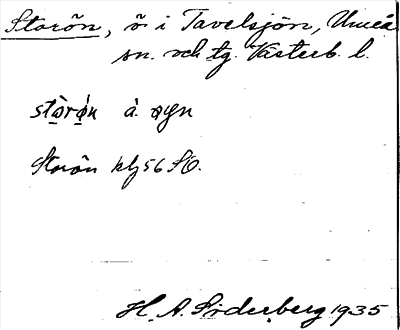 Storön, ö i Tavelsjön, Umeå
sn. och tg. Västerb. l.
stòrǿn à. øyn
Storön kbl 56 SO.
H. A. Söderberg 1935